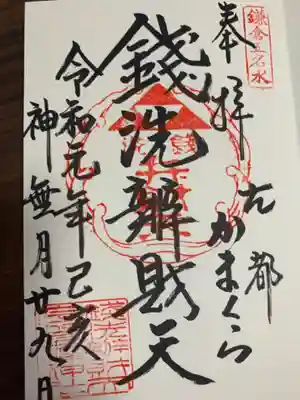 鎌倉五名水
奉拝
古都
かまくら
銭洗辨財天
令和元年己亥
神無月廿九日